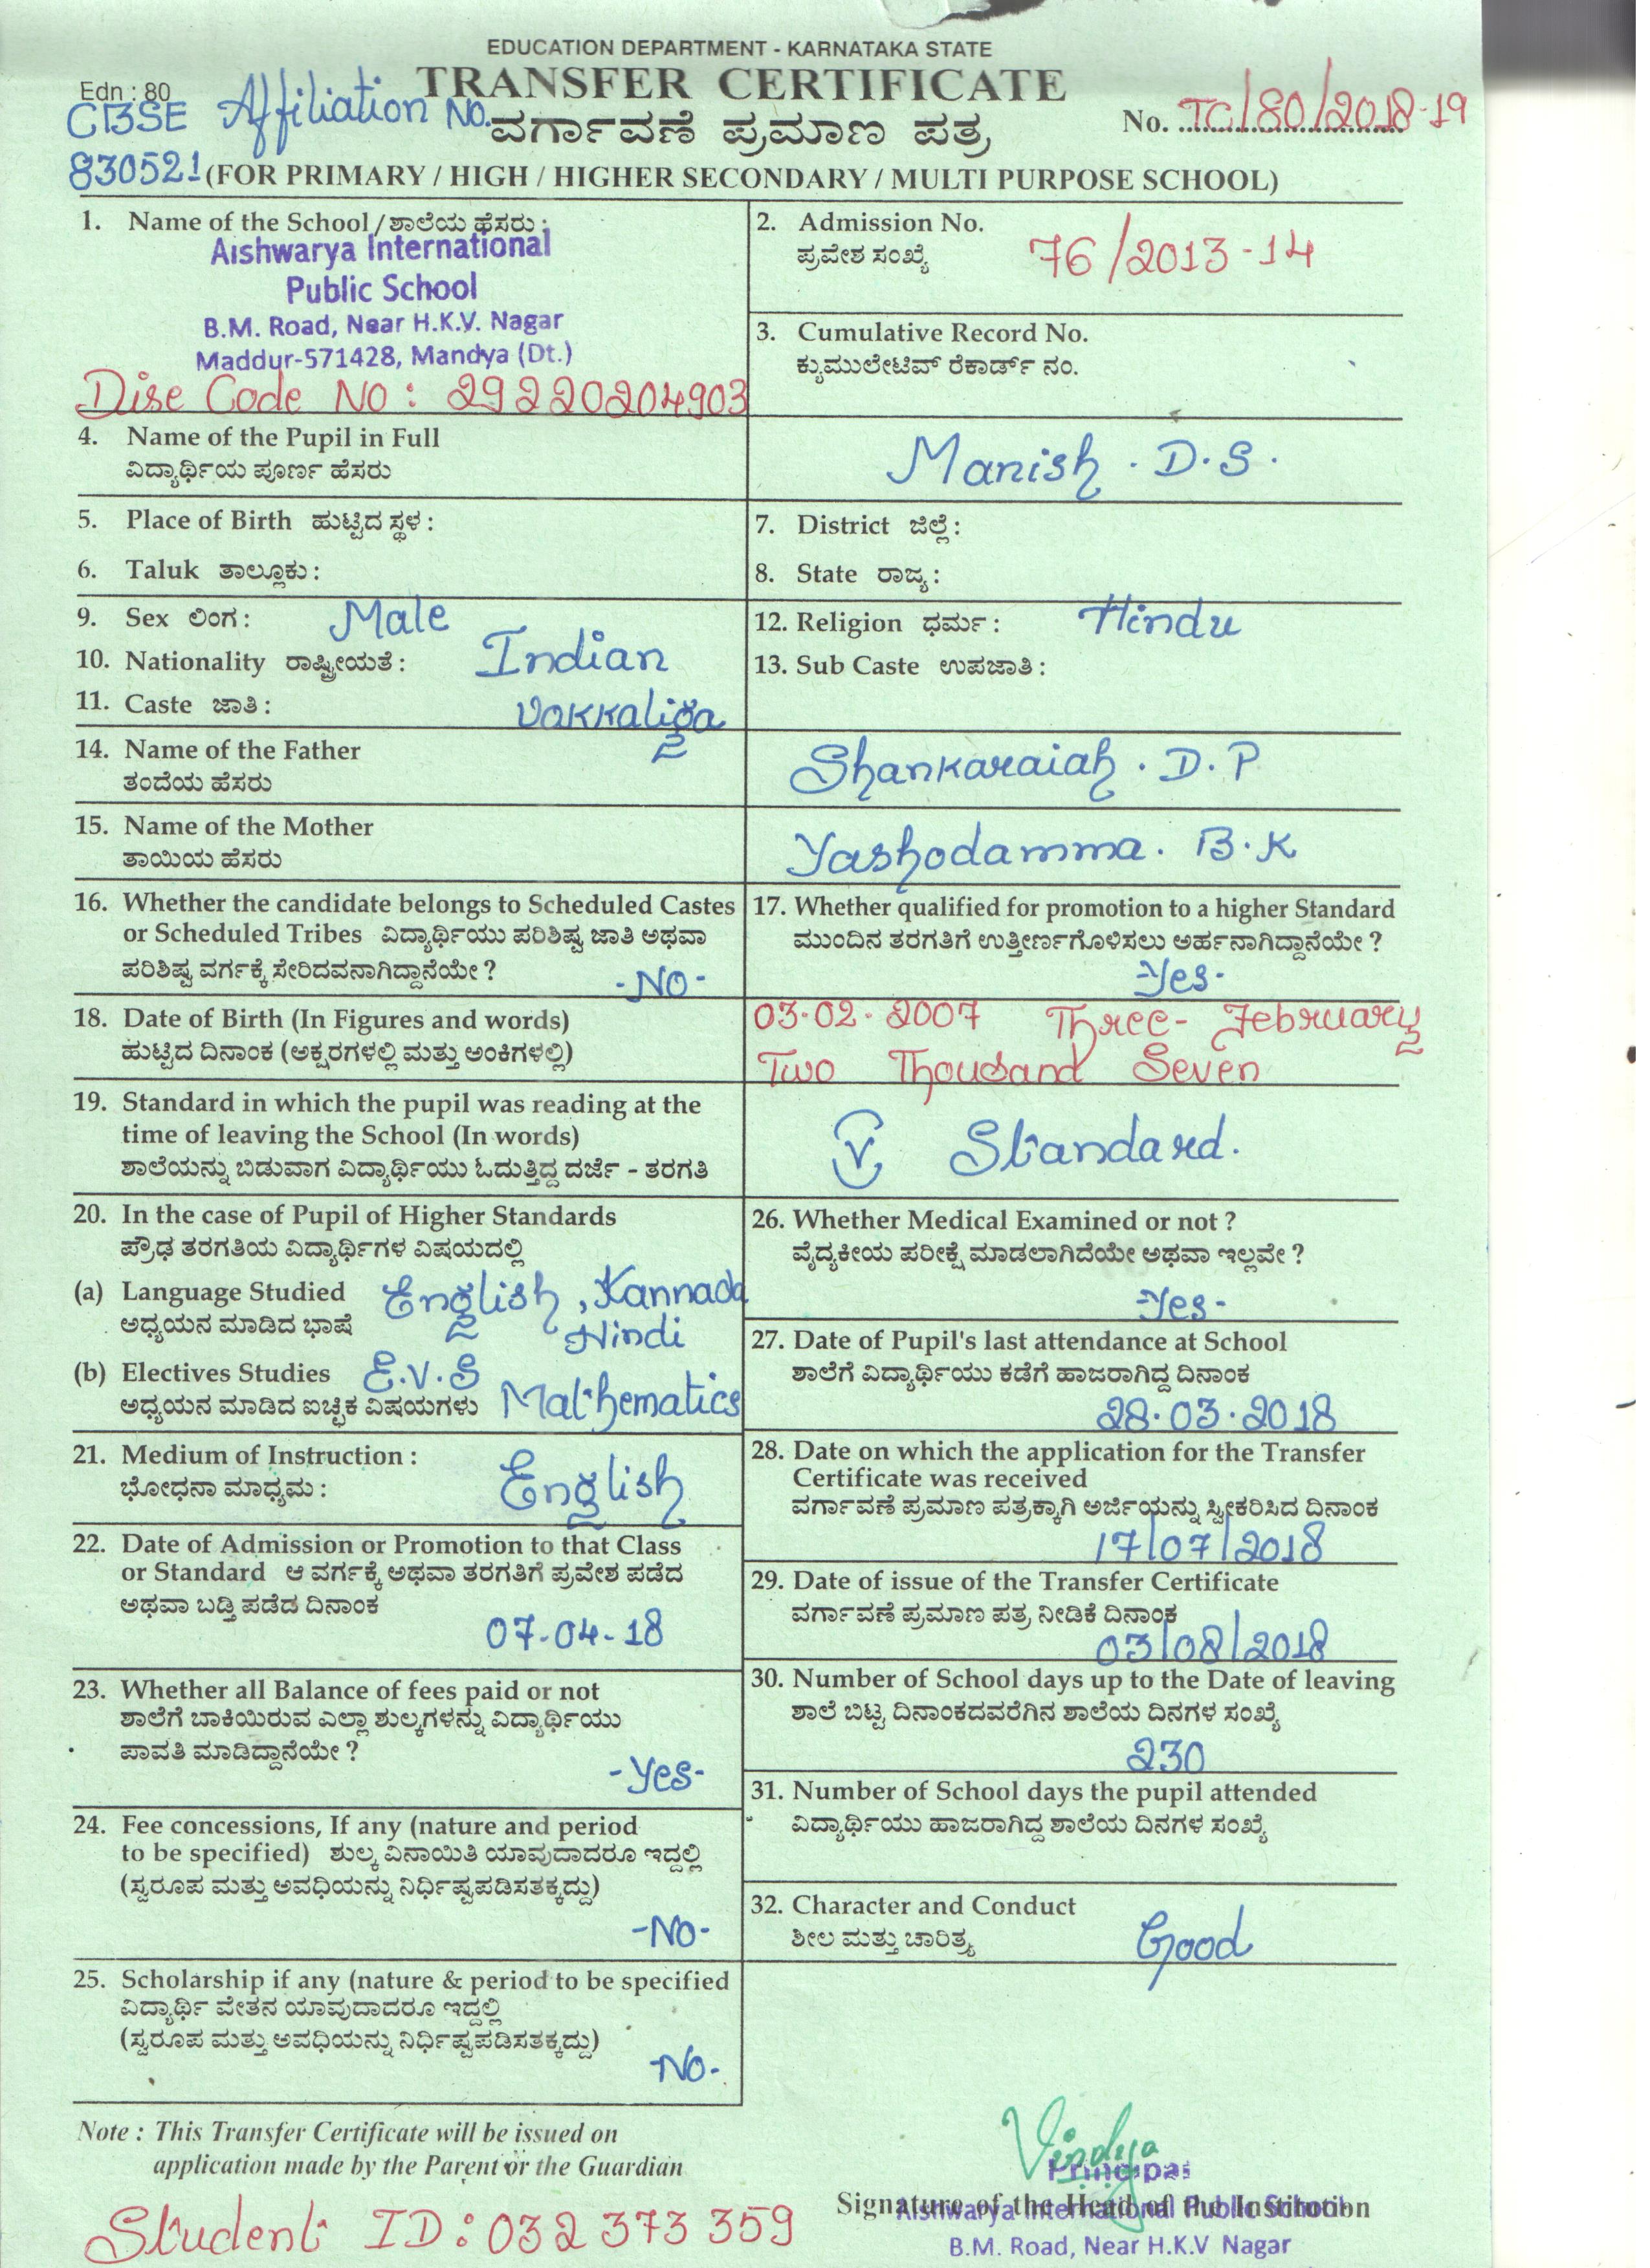 EDUCATION DEPARTMENT - KARNATAKA STATE
TRANSFER CERTIFICATE
Edn : 80
CBSE Affiliation No.
ವರ್ಗಾವಣೆ ಪ್ರಮಾಣ ಪತ್ರ
No. TC/80/2018-19
830521 (FOR PRIMARY / HIGH / HIGHER SECONDARY / MULTI PURPOSE SCHOOL)
1. Name of the School / ಶಾಲೆಯ ಹೆಸರು :
Aishwarya International
Public School
B.M. Road, Near H.K.V. Nagar
Maddur-571428, Mandya (Dt.)
Dise Code No : 29220204903
2. Admission No.
ಪ್ರವೇಶ ಸಂಖ್ಯೆ 76/2013-14
3. Cumulative Record No.
ಕ್ಯುಮುಲೇಟಿವ್ ರೆಕಾರ್ಡ್ ನಂ.
4. Name of the Pupil in Full
ವಿದ್ಯಾರ್ಥಿಯ ಪೂರ್ಣ ಹೆಸರು
Manish . D.S.
5. Place of Birth ಹುಟ್ಟಿದ ಸ್ಥಳ :
7. District ಜಿಲ್ಲೆ :
6. Taluk ತಾಲ್ಲೂಕು :
8. State ರಾಜ್ಯ :
9. Sex ಲಿಂಗ : Male
10. Nationality ರಾಷ್ಟ್ರೀಯತೆ : Indian
11. Caste ಜಾತಿ : Vokkaliga
12. Religion ಧರ್ಮ : Hindu
13. Sub Caste ಉಪಜಾತಿ :
14. Name of the Father
ತಂದೆಯ ಹೆಸರು
Shankaraiah . D.P
15. Name of the Mother
ತಾಯಿಯ ಹೆಸರು
Yashodamma. B.K
16. Whether the candidate belongs to Scheduled Castes
or Scheduled Tribes ವಿದ್ಯಾರ್ಥಿಯು ಪರಿಶಿಷ್ಟ ಜಾತಿ ಅಥವಾ
ಪರಿಶಿಷ್ಟ ವರ್ಗಕ್ಕೆ ಸೇರಿದವನಾಗಿದ್ದಾನೆಯೇ ?
-NO-
17. Whether qualified for promotion to a higher Standard
ಮುಂದಿನ ತರಗತಿಗೆ ಉತ್ತೀರ್ಣಗೊಳಿಸಲು ಅರ್ಹನಾಗಿದ್ದಾನೆಯೇ ?
-Yes-
18. Date of Birth (In Figures and words)
ಹುಟ್ಟಿದ ದಿನಾಂಕ (ಅಕ್ಷರಗಳಲ್ಲಿ ಮತ್ತು ಅಂಕಿಗಳಲ್ಲಿ)
03-02-2007 Three- February
Two Thousand Seven
19. Standard in which the pupil was reading at the
time of leaving the School (In words)
ಶಾಲೆಯನ್ನು ಬಿಡುವಾಗ ವಿದ್ಯಾರ್ಥಿಯು ಓದುತ್ತಿದ್ದ ದರ್ಜೆ - ತರಗತಿ
V Standard.
20. In the case of Pupil of Higher Standards
ಪ್ರೌಢ ತರಗತಿಯ ವಿದ್ಯಾರ್ಥಿಗಳ ವಿಷಯದಲ್ಲಿ
(a) Language Studied English, Kannada
ಅಧ್ಯಯನ ಮಾಡಿದ ಭಾಷೆ Hindi
(b) Electives Studies E.V.S
ಅಧ್ಯಯನ ಮಾಡಿದ ಐಚ್ಛಿಕ ವಿಷಯಗಳು Mathematics
21. Medium of Instruction :
ಭೋಧನಾ ಮಾಧ್ಯಮ : English
22. Date of Admission or Promotion to that Class
or Standard ಆ ವರ್ಗಕ್ಕೆ ಅಥವಾ ತರಗತಿಗೆ ಪ್ರವೇಶ ಪಡೆದ
ಅಥವಾ ಬಡ್ತಿ ಪಡೆಡ ದಿನಾಂಕ
07-04-18
23. Whether all Balance of fees paid or not
ಶಾಲೆಗೆ ಬಾಕಿಯಿರುವ ಎಲ್ಲಾ ಶುಲ್ಕಗಳನ್ನು ವಿದ್ಯಾರ್ಥಿಯು
ಪಾವತಿ ಮಾಡಿದ್ದಾನೆಯೇ ?
-Yes-
24. Fee concessions, If any (nature and period
to be specified) ಶುಲ್ಕ ವಿನಾಯಿತಿ ಯಾವುದಾದರೂ ಇದ್ದಲ್ಲಿ
(ಸ್ವರೂಪ ಮತ್ತು ಅವಧಿಯನ್ನು ನಿರ್ಧಿಷ್ಟಪಡಿಸತಕ್ಕದ್ದು)
-NO-
25. Scholarship if any (nature & period to be specified
ವಿದ್ಯಾರ್ಥಿ ವೇತನ ಯಾವುದಾದರೂ ಇದ್ದಲ್ಲಿ
(ಸ್ವರೂಪ ಮತ್ತು ಅವಧಿಯನ್ನು ನಿರ್ಧಿಷ್ಟಪಡಿಸತಕ್ಕದ್ದು)
-NO-
26. Whether Medical Examined or not ?
ವೈದ್ಯಕೀಯ ಪರೀಕ್ಷೆ ಮಾಡಲಾಗಿದೆಯೇ ಅಥವಾ ಇಲ್ಲವೇ ?
-Yes-
27. Date of Pupil's last attendance at School
ಶಾಲೆಗೆ ವಿದ್ಯಾರ್ಥಿಯು ಕಡೆಗೆ ಹಾಜರಾಗಿದ್ದ ದಿನಾಂಕ
28.03.2018
28. Date on which the application for the Transfer
Certificate was received
ವರ್ಗಾವಣೆ ಪ್ರಮಾಣ ಪತ್ರಕ್ಕಾಗಿ ಅರ್ಜಿಯನ್ನು ಸ್ವೀಕರಿಸಿದ ದಿನಾಂಕ
17/07/2018
29. Date of issue of the Transfer Certificate
ವರ್ಗಾವಣೆ ಪ್ರಮಾಣ ಪತ್ರ ನೀಡಿಕೆ ದಿನಾಂಕ
03/08/2018
30. Number of School days up to the Date of leaving
ಶಾಲೆ ಬಿಟ್ಟ ದಿನಾಂಕದವರೆಗಿನ ಶಾಲೆಯ ದಿನಗಳ ಸಂಖ್ಯೆ
230
31. Number of School days the pupil attended
ವಿದ್ಯಾರ್ಥಿಯು ಹಾಜರಾಗಿದ್ದ ಶಾಲೆಯ ದಿನಗಳ ಸಂಖ್ಯೆ
32. Character and Conduct
ಶೀಲ ಮತ್ತು ಚಾರಿತ್ರ್ಯ Good
Note : This Transfer Certificate will be issued on
application made by the Parent or the Guardian
Student ID : 032373359
Vindya
Principal
Signature of the Head of the Institution
Aishwarya International Public School
B.M. Road, Near H.K.V Nagar